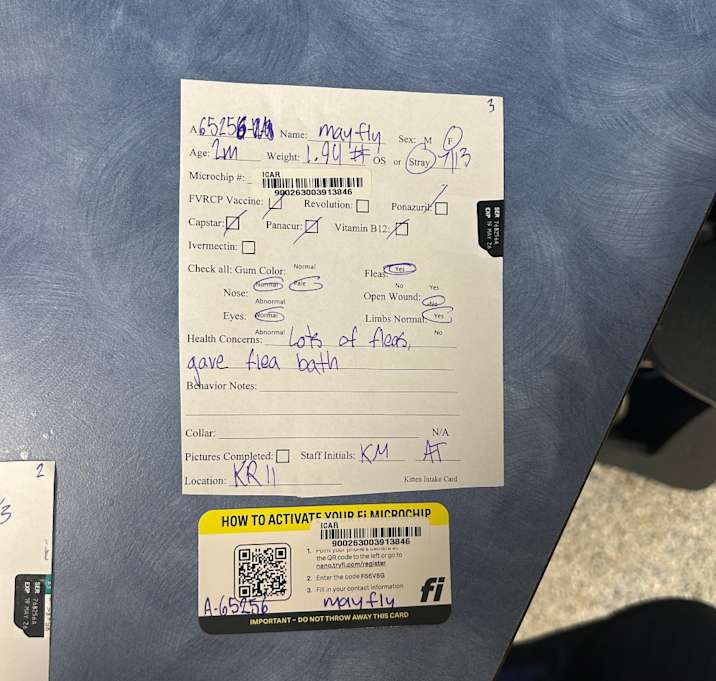 3
A 65256 Name: mayfly Sex: M F
Age: 2m Weight: 1.94 # OS or Stray 7/13
Microchip #: ICAR
990263003913846
FVRCP Vaccine: Revolution: Ponazuril:
Capstar: Panacur: Vitamin B12:
Ivermectin:
SER 748256A
EXP 19 MAY 26
Check all: Gum Color: Normal Pale Fleas: Yes No
Nose: Normal Abnormal Open Wound: Yes No
Eyes: Normal Abnormal Limbs Normal: Yes No
Health Concerns: Lots of fleas,
gave flea bath
Behavior Notes:
Collar: N/A
Pictures Completed: Staff Initials: KM AT
Location: KR11 Kitten Intake Card
HOW TO ACTIVATE YOUR Fi MICROCHIP
ICAR
900263003913846
1. Point your phone's camera at
the QR code to the left or go to
nano.tryfi.com/register
2. Enter the code FS6V8G
3. Fill in your contact information
fi
A-65256 mayfly
IMPORTANT – DO NOT THROW AWAY THIS CARD
2
3
SER 748256A
EXP 19 MAY 26